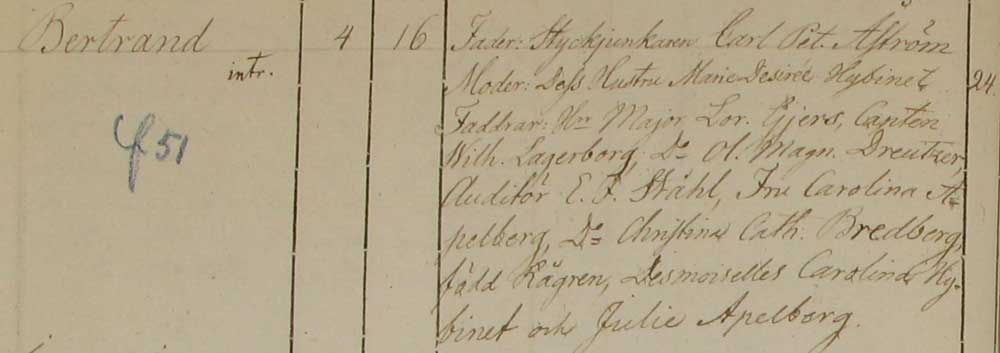 Bertrand 4 16 Fader: Styckjunkaren Carl Pet. Åström
intr. Moder: Dess Hustru Marie Desirée Hybinet 24.
Faddrar: Hrr Major Lor. Gjers, Capten
Wilh. Lagerborg, Do Ol. Magn. Dreutzer,
f 51 Auditör E. F. Ståhl, Fru Carolina A-
pelberg, Do Christina Cath. Bredberg,
född Rågren, Desmoiselles Carolina Hy-
binet och Julie Apelberg.